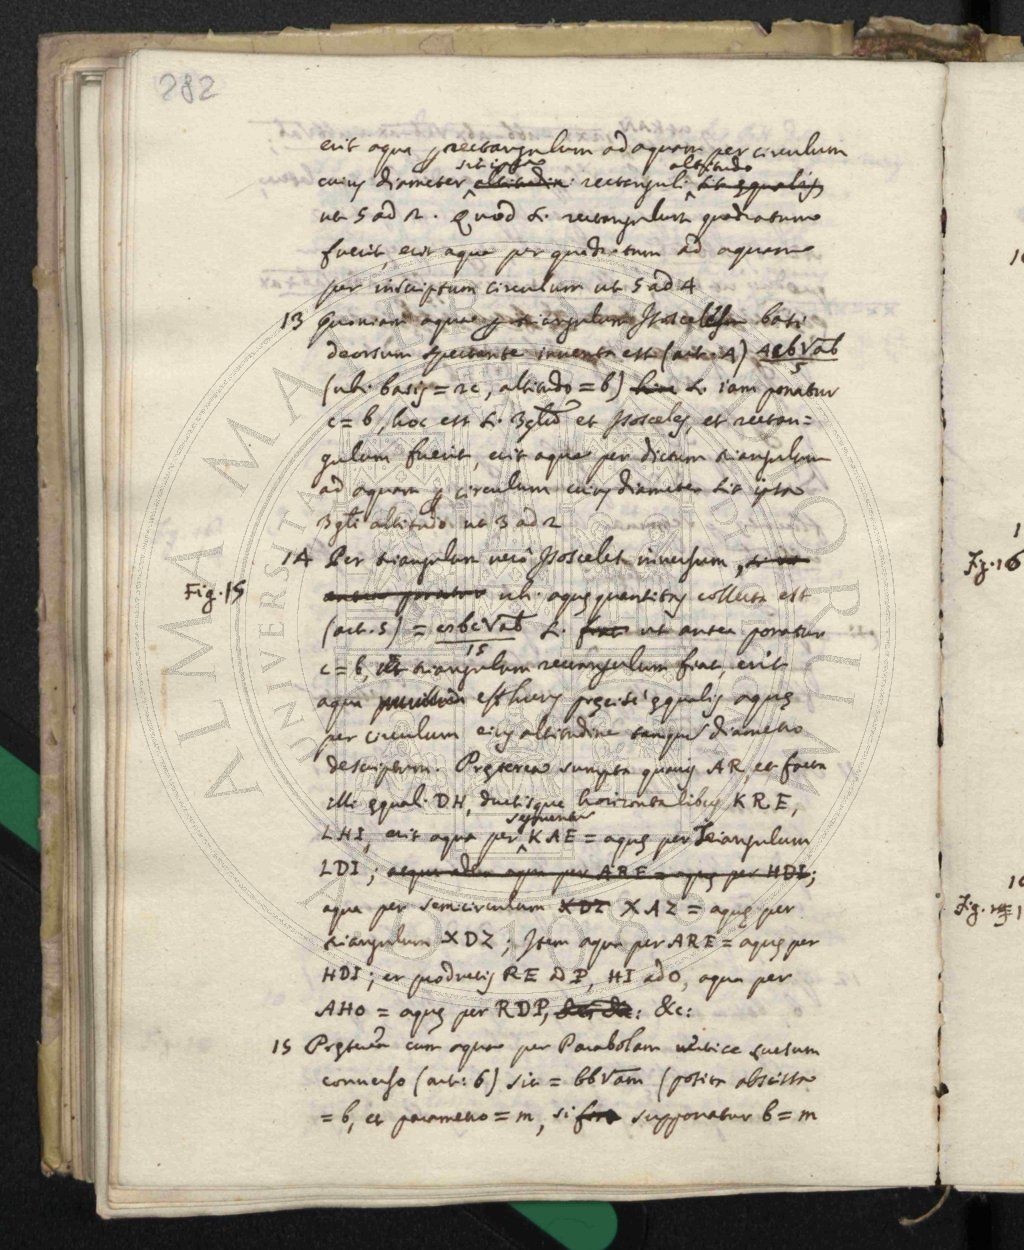 282
erit aqua per rectangulum ad aquam per circulum
cuius diameter sit ipsa altitudini rectanguli altitudo sit equalis
ut 5 ad 2. Quod si rectangulum quadratum
fuerit, erit aqua per quadratum ad aquam
per inscriptum circulum ut 5 ad 4
13 Quoniam aqua per triangulum Isoscelem basi
deorsum spectante inventa est (art. 4) 4cb√ab/5
(ubi basis = 2c, altitudo = b) si iam ponatur
c = b, hoc est si 3glũ et Isosceles, et rectan=
gulum fuerit, erit aqua per dictum triangulum
ad aquam p circulum cuius diameter sit ipsa
3gli altitudo ut 3 ad 2
14 Per triangulum vero Isosceles inversum, si ut
antea ponatur ubi aquę quantitas collecta est
Fig. 15
(art. 5) = 8bc√ab/15 si ut antea ponatur
c = b, ut triangulum rectangulum fiat, erit
aqua effluens pręcisè ęqualis aquę
per circulum eius altitudine tanquã diametro
descriptum. Pręterea sumpta quavis AR, et facta
illi ęquali DH, ductisque horizontalibus KRE,
LHI, erit aqua per segmentum KAE = aquę per Triangulum
LDI; aqua per ARE = aquę per HDI;
aqua per semicirculum XDZ XAZ = aquę per
triangulum XDZ; Item aqua per ARE = aquę per
HDI; et productis RE ad P, HI ad O, aqua per
AHO = aquę per RDP, &c: &c:
15 Pręterea cum aqua per Parabolam vertice sursum
converso (art: 6) sit = bb√am (posita abscissa
= b, et parametro = m, si supponatur b = m
Fig. 16